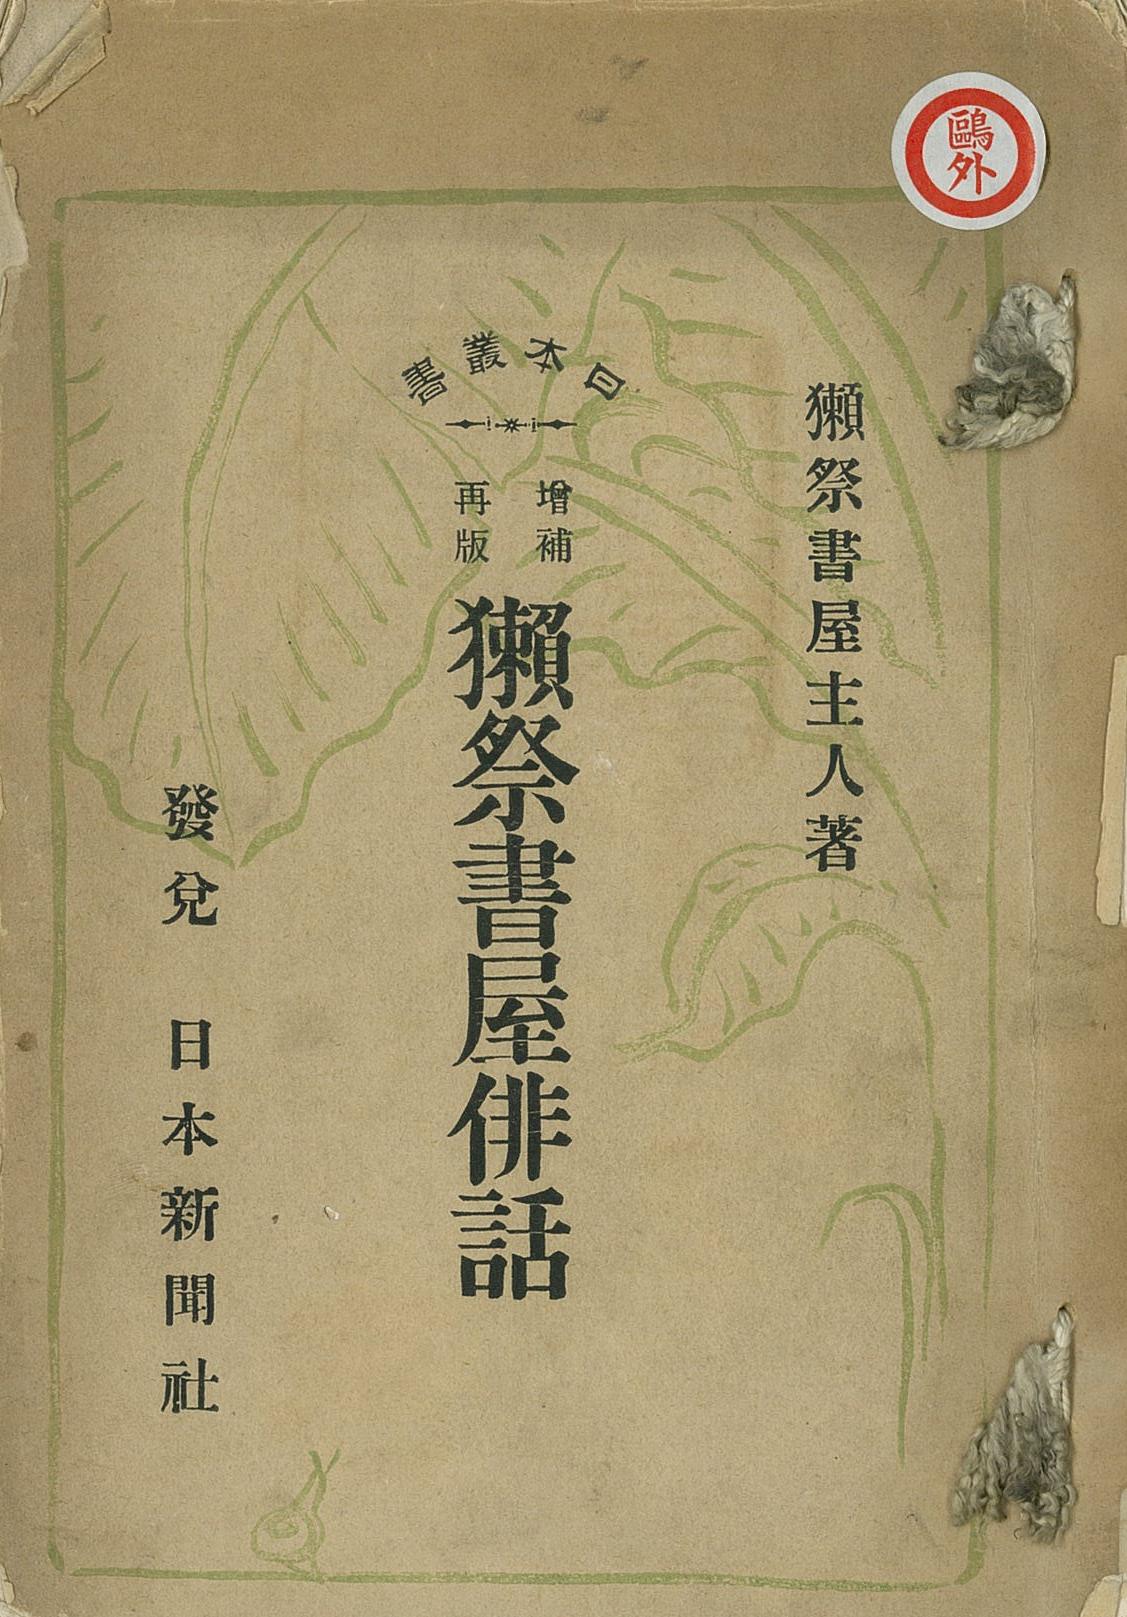 鷗外
獺祭書屋主人著
日本叢書
增補
再版
獺祭書屋俳話
發兌 日本新聞社